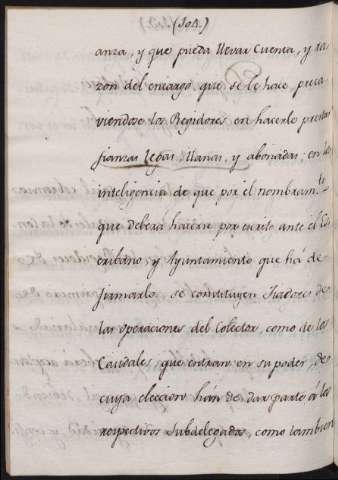 (504.)
anza, y que pueda llevar Cuenta, y ra
zon del encargo, que se le hace preca
viendose los Regidores en hacerle prestar
fianzas Legas, Llanas, y abonadas; en la
inteligencia de que por el nombram.to
que deberá hacerse por escrito ante el Es
cribano, y Ayuntamiento que há de
firmarlo, se constituyen Fiadores de
las operaciones del Colector, como de los
Caudales, que entraren en su poder, de
cuya eleccion hán de dar parte á los
respectivos Subdelegados, como tambien